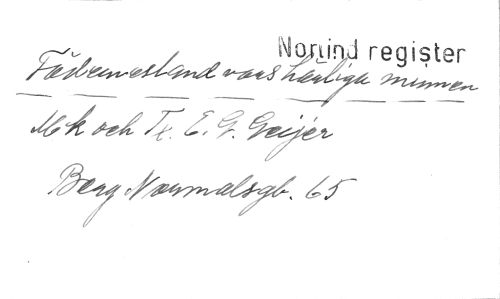 Norlind register
Fädernesland vars härliga minnen
Mk och Tx. E. G. Geijer
Berg Normalsgb. 65